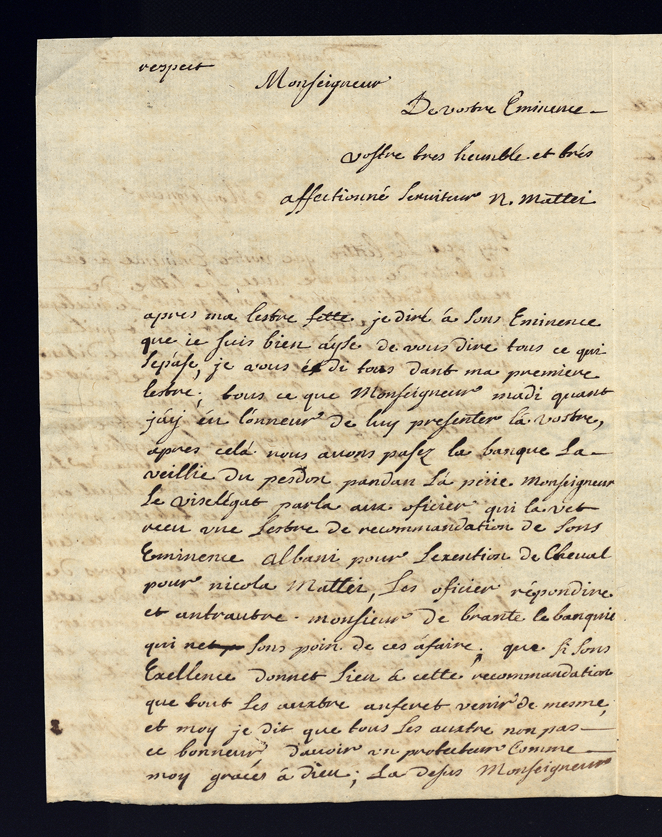 respect
Monseigneur
De vostre Eminence
vostre tres humble et trés
affectionné serviteur N. Mattei
apres ma lestre fette je diré à sons Eminence
que ie suis bien ayse de vous dire tous ce qui
sepáse, je vous é di tous dant ma premiere
lestre; tous ce que Monseigneur madi quant
jáy éu lónneur de luy presenter la vostre,
apres celá nous avons pasez la banque La
veillie du pesdon pandan Lá péiie Monseigneur
Le viselégat parla aux oficier qui lavet
receu une Lestre de recommandation de sons
Eminence Albani pour Lexention de Cheval
pour nicola Mattei, Les oficier répondire
et antrautre monsieur de brante le banquie
qui sons poin de ces áfaire; que si sons
Exellence donnet Lieu à cette recommandation
que tout Les auxtre anferet venir de mesme,
et moy je dit que tous Les auxtre non pas
ce bonneur davoir un protecteur Comme
moy graces à Dieu; La desus Monseigneur